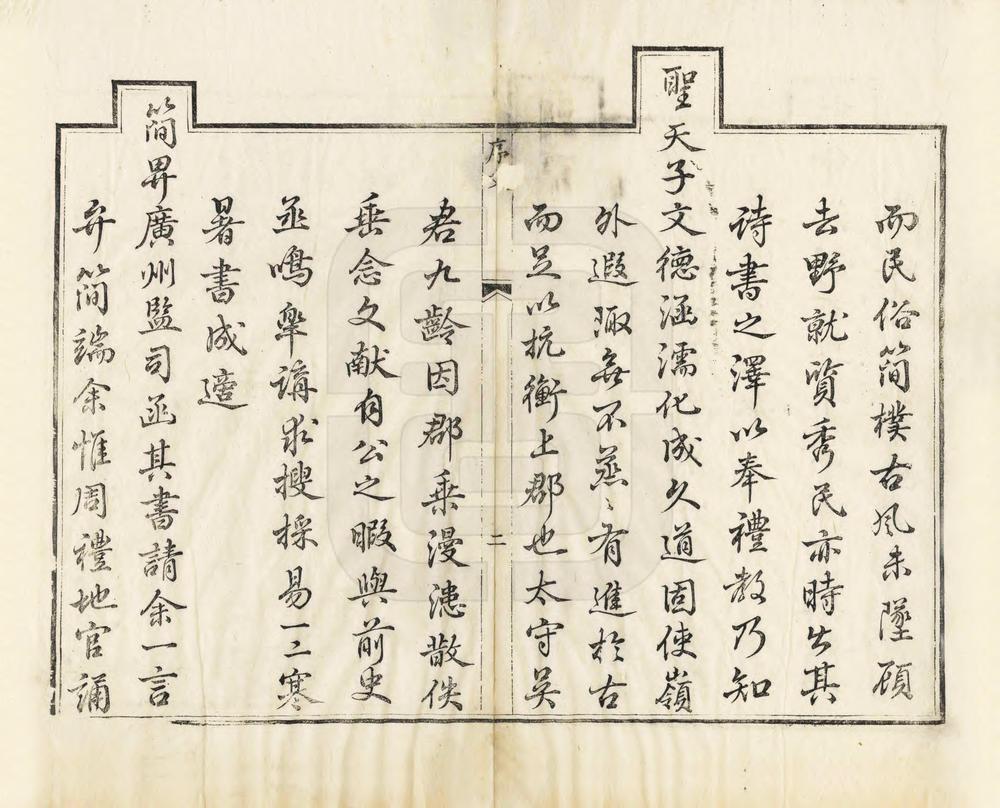 而民俗簡樸古風未墜顧
去野就賢秀民亦時出其
詩書之澤以奉禮教乃知
聖天子文德涵濡化成久道固使嶺
外遐陬無不蒸〻有進於古
而足以抗衡上郡也太守吴
序
二
君九齡因郡乘漫漶散佚
垂念文献自公之暇與前史
丞鳴皋講求搜採易一二寒
暑書成適
簡畀廣州監司函其書請余一言
弁簡端余惟周禮地官誦